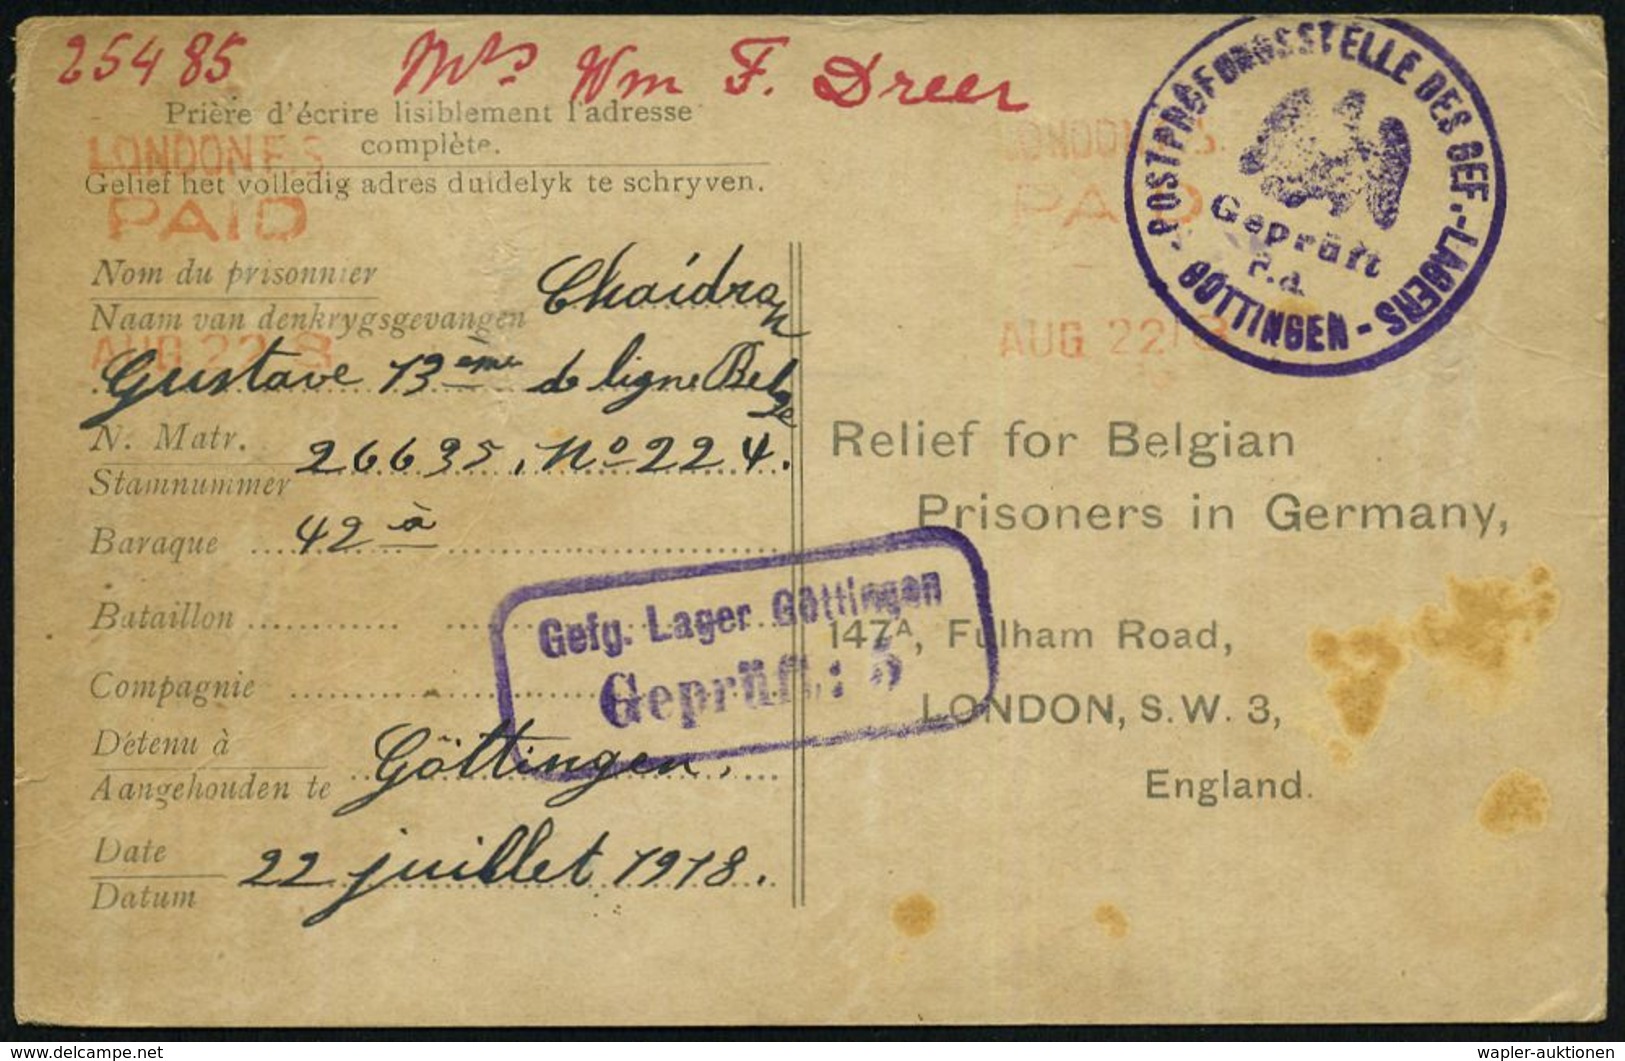 25485 Mrs Wm F. Dreer
Prière d'écrire lisiblement l'adresse
complète.
Gelief het volledig adres duidelyk te schryven.
LONDON F.S
PAID
AUG 22 8
LONDON F.S.
PAID
AUG 22 18
·POSTPRÜFUNGSSTELLE DES GEF.-LAGERS-
GÖTTINGEN-
Geprüft
F.d.
Nom du prisonnier
Naam van denkrygsgevangen
Chaidron
Gustave 13ème de ligne Belge
N. Matr.
Stamnummer
26635, No 224.
Baraque 42 à
Bataillon
Compagnie
Détenu à
Aangehouden te
Göttingen.
Date
Datum
22 juillet 1918.
Gefg. Lager Göttingen
Geprüft: 5
Relief for Belgian
Prisoners in Germany,
147A, Fulham Road,
LONDON, S.W. 3,
England.
delcampe.net
wapler-auktionen